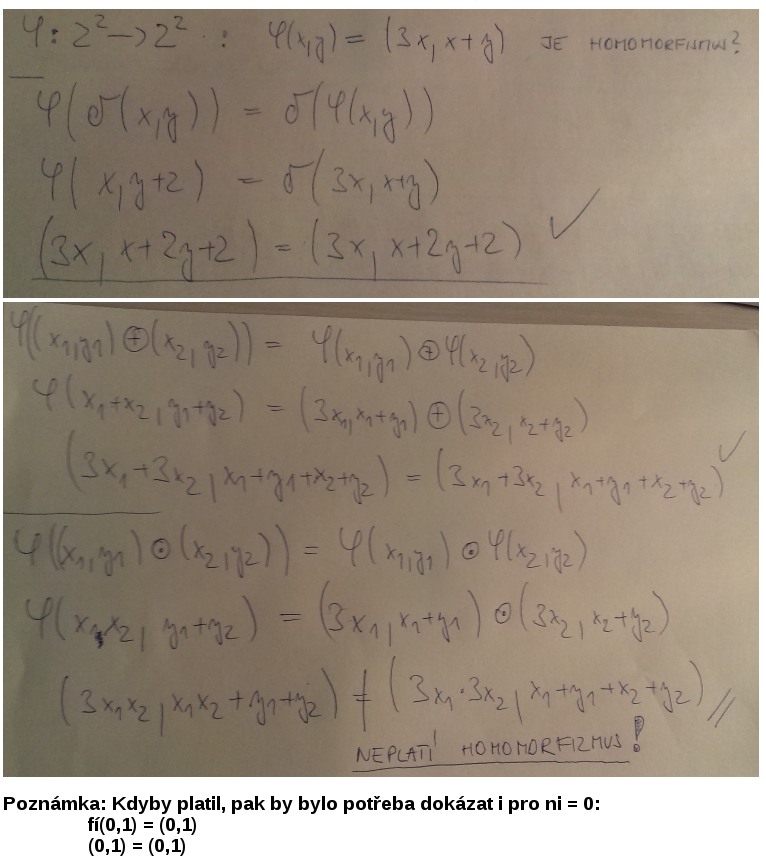 φ: Z² → Z² : φ(x,y) = (3x, x+y) JE HOMOMORFISMUS?
φ(σ(x,y)) = σ(φ(x,y))
φ(x, y+2) = σ(3x, x+y)
(3x, x+2y+2) = (3x, x+2y+2) ✓
φ((x₁,y₁) ⊕ (x₂,y₂)) = φ(x₁,y₁) ⊕ φ(x₂,y₂)
φ(x₁+x₂, y₁+y₂) = (3x₁, x₁+y₁) ⊕ (3x₂, x₂+y₂)
(3x₁+3x₂, x₁+y₁+x₂+y₂) = (3x₁+3x₂, x₁+y₁+x₂+y₂) ✓
φ((x₁,y₁) ⊙ (x₂,y₂)) = φ(x₁,y₁) ⊙ φ(x₂,y₂)
φ(x₁x₂, y₁+y₂) = (3x₁, x₁+y₁) ⊙ (3x₂, x₂+y₂)
(3x₁x₂, x₁x₂+y₁+y₂) ≠ (3x₁·3x₂, x₁+y₁+x₂+y₂) //
NEPLATÍ HOMOMORFIZMUS!
Poznámka: Kdyby platil, pak by bylo potřeba dokázat i pro ni = 0:
fí(0,1) = (0,1)
(0,1) = (0,1)